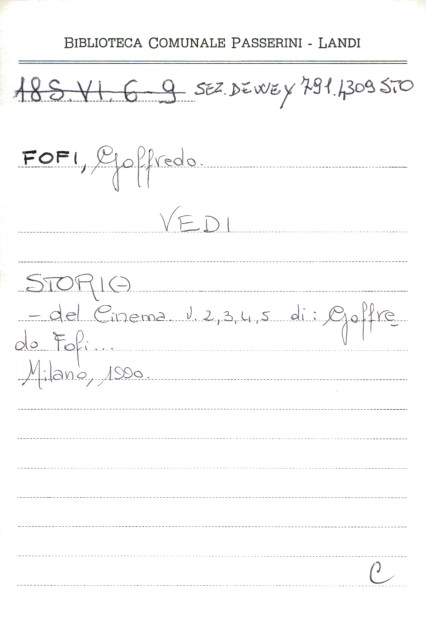 BIBLIOTECA COMUNALE PASSERINI - LANDI
18S.VI.6-9 SEZ. DEWEY 791.4309 STO
FOFI, Goffredo.
VEDI
STORIA
- del Cinema. V. 2,3,4,5 di: Goffre
do Fofi...
Milano, 1990.
C